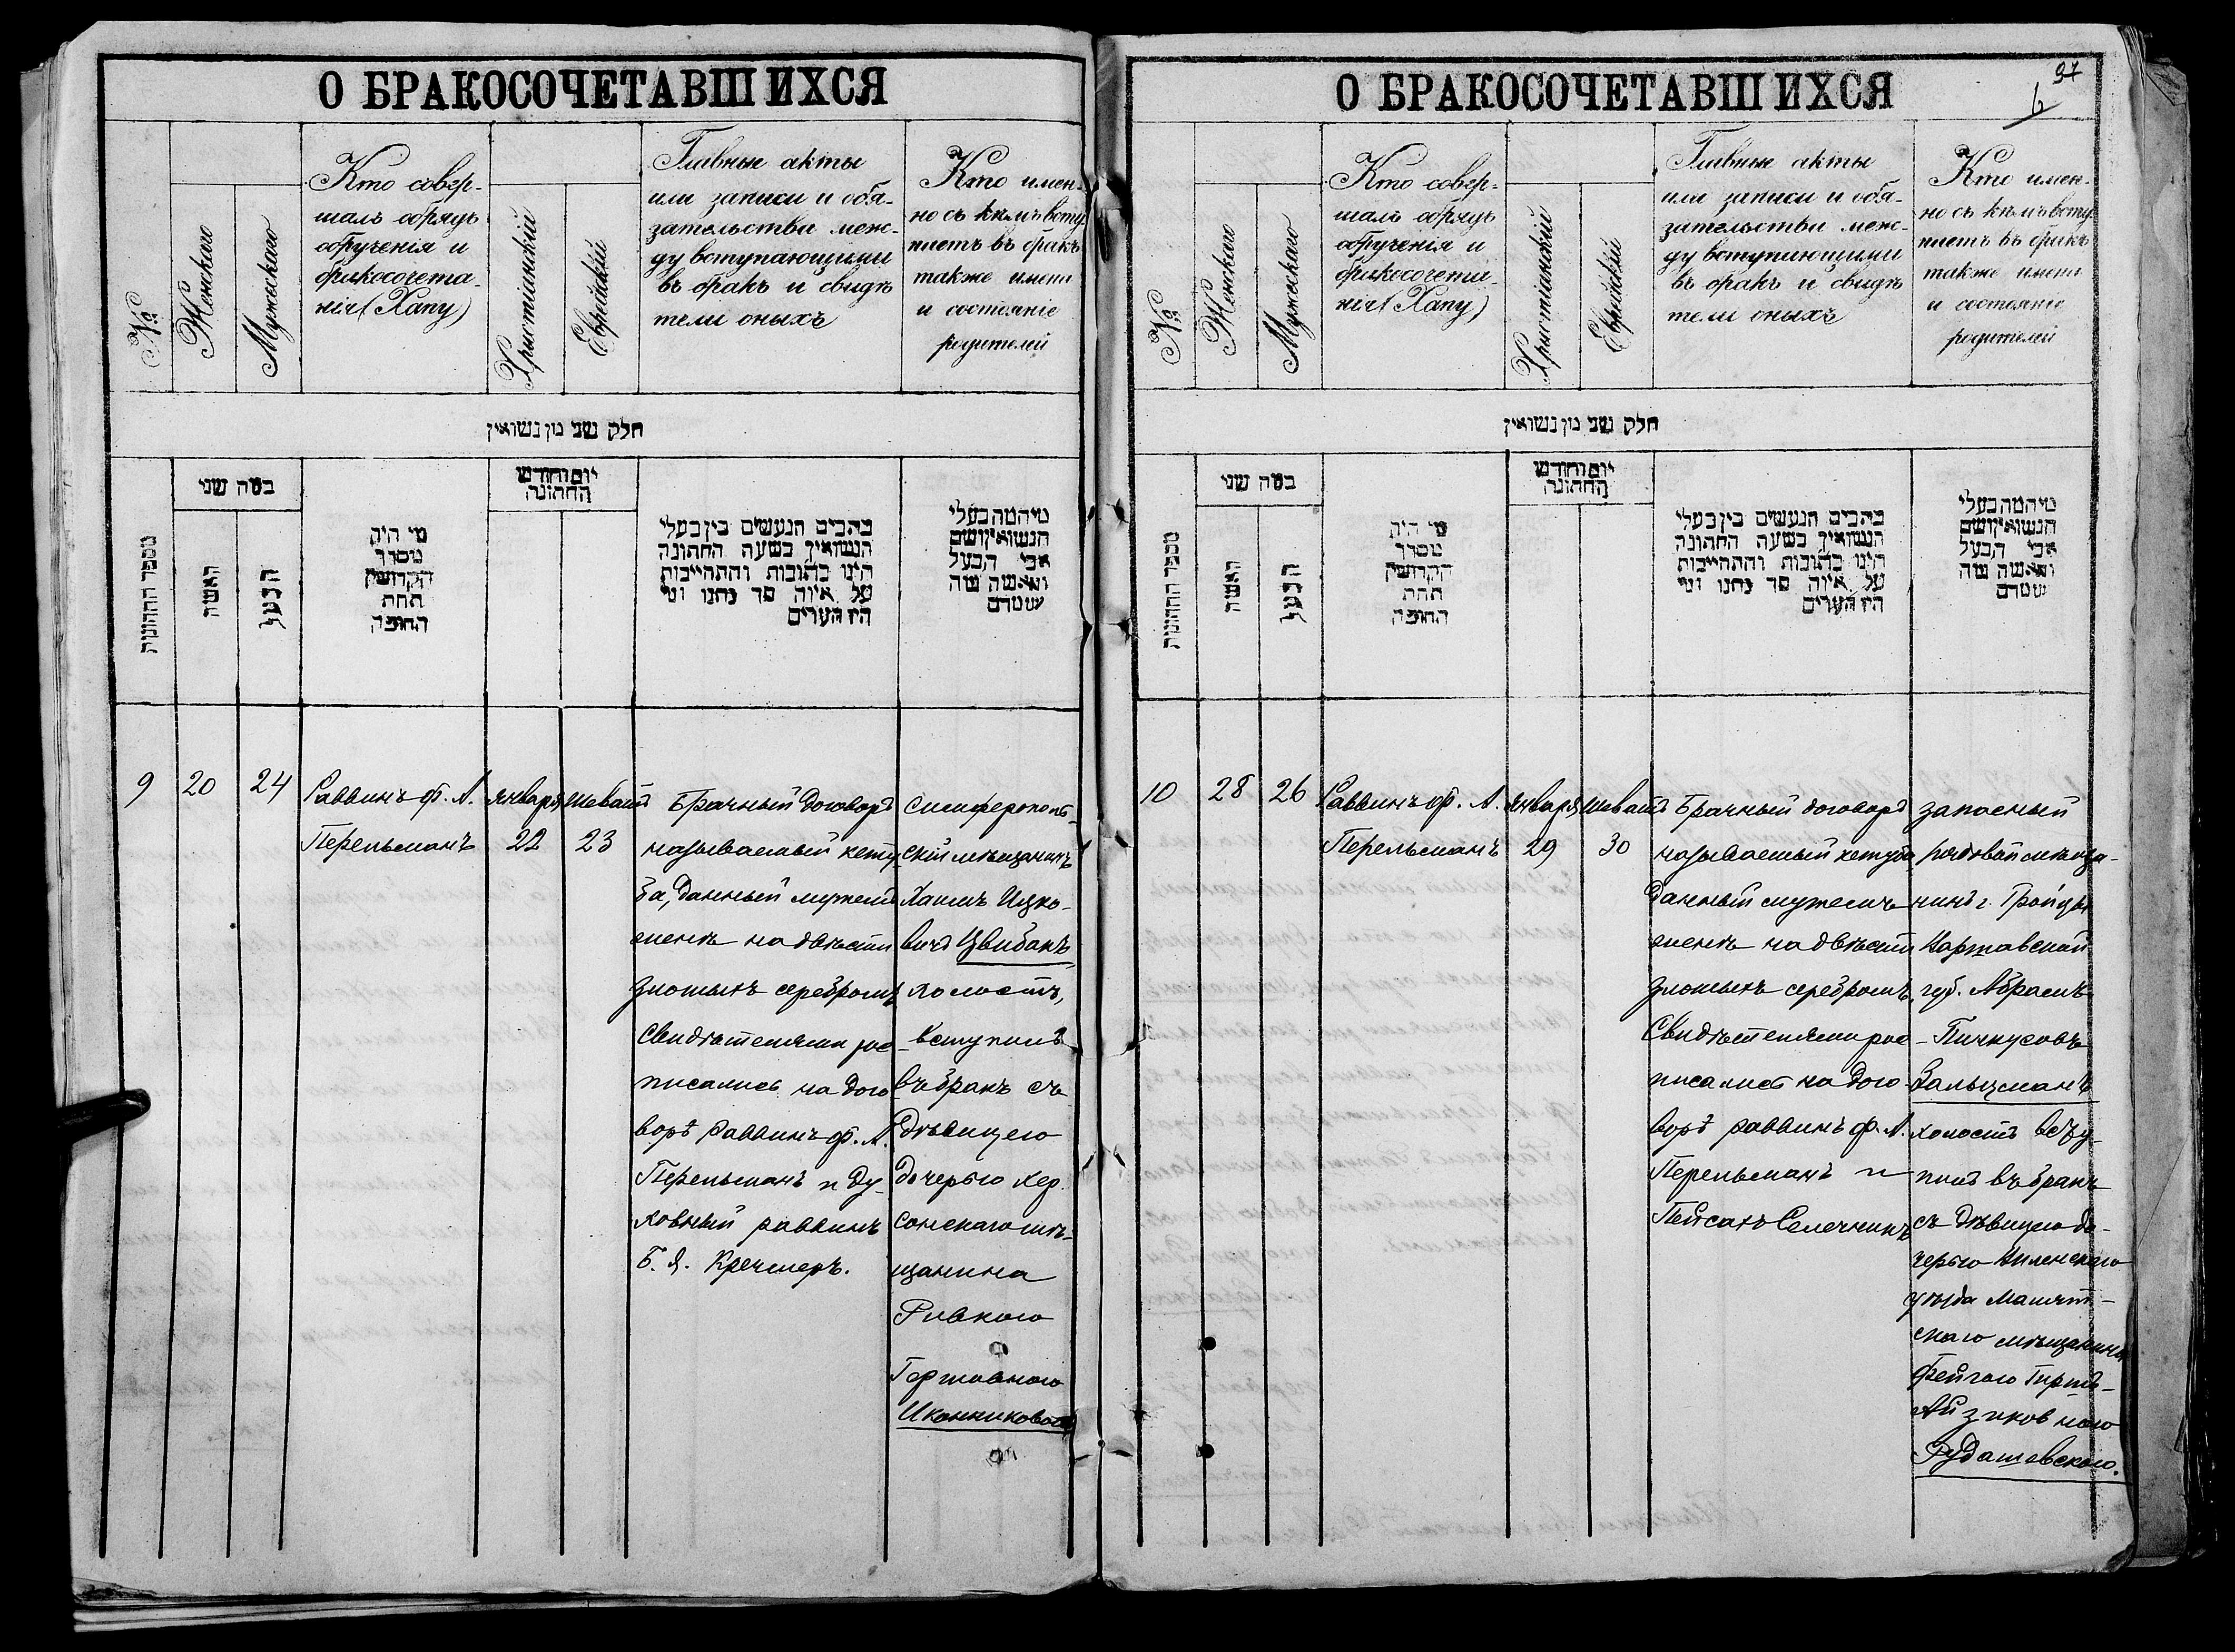 О БРАКОСОЧЕТАВШИХСЯ
№
Женскаго
Мужескаго
Кто совер-
шалъ обрядъ
обрученія и
бракосочета-
нія (Хапу)
Христіанскій
Еврейскій
Главные акты
или записи и обя-
зательства меж-
ду вступающими
въ бракъ и свидѣ
тели оныхъ
Кто имен-
но съ кѣмъ всту-
паетъ въ бракъ
также имена
и состояніе
родителей
חלק שני מן נשואין
מספר החתונות
כמה שני
האשה
הבעל
מי היה
מסדר
הקדושין
תחת
החופה
יום וחודש
החתונה
כתבים הנעשים בין בעלי
הנשואין בשעה החתונה
היינו כתובות והתחייבות
על איזה סך נתנו ומי
היו העדים
מי המה בעלי
הנשואין ושם
אבי הבעל
והאשה
9
20
24
Раввинъ Ф. А.
Перельманъ
Января
22
Шеватъ
23
Брачный договоръ
называемый кету
ба, данный мужемъ
женѣ на двѣсти
злотыхъ серебромъ
Свидѣтелями рос
писались на дого
ворѣ раввинъ Ф. А.
Перельманъ и Ду-
ховный раввинъ
Б. Я. Кречмеръ.
Симферополь-
скій мѣщанинъ
Хаимъ Ицко-
вичъ Цвибакъ
холостъ,
вступилъ
въ бракъ съ
дѣвицею
дочерью Хер
сонскаго мѣ-
щанина
Ривкою
Гершовною
Иконниковою
О БРАКОСОЧЕТАВШИХСЯ
97
6
№
Женскаго
Мужескаго
Кто совер-
шалъ обрядъ
обрученія и
бракосочета-
нія (Хапу)
Христіанскій
Еврейскій
Главные акты
или записи и обя-
зательства меж-
ду вступающими
въ бракъ и свидѣ
тели оныхъ
Кто имен-
но съ кѣмъ всту-
паетъ въ бракъ
также имена
и состояніе
родителей
חלק שני מן נשואין
מספר החתונות
כמה שני
האשה
הבעל
מי היה
מסדר
הקדושין
תחת
החופה
יום וחודש
החתונה
כתבים הנעשים בין בעלי
הנשואין בשעה החתונה
היינו כתובות והתחייבות
על איזה סך נתנו ומי
היו העדים
מי המה בעלי
הנשואין ושם
אבי הבעל
והאשה
10
28
26
Раввинъ Ф. А.
Перельманъ
Января
29
Шеватъ
30
Брачный договоръ
называемый кетуба,
данный мужемъ
женѣ на двѣсти
злотыхъ серебромъ.
Свидѣтелями рос-
писались на дого-
ворѣ раввинъ Ф. А.
Перельманъ и
Пейсахъ Селечникъ
запасный
рядовой мѣща-
нинъ г. Гройцы
Варшавской
губ. Абрамъ
Пинкусовъ
Зальцманъ
холостъ всту-
пилъ въ бракъ
съ дѣвицею до-
черью Виленскаго
уѣзда
скаго мѣщанина
Фейгою
Айзиковною
Рудашевскою.